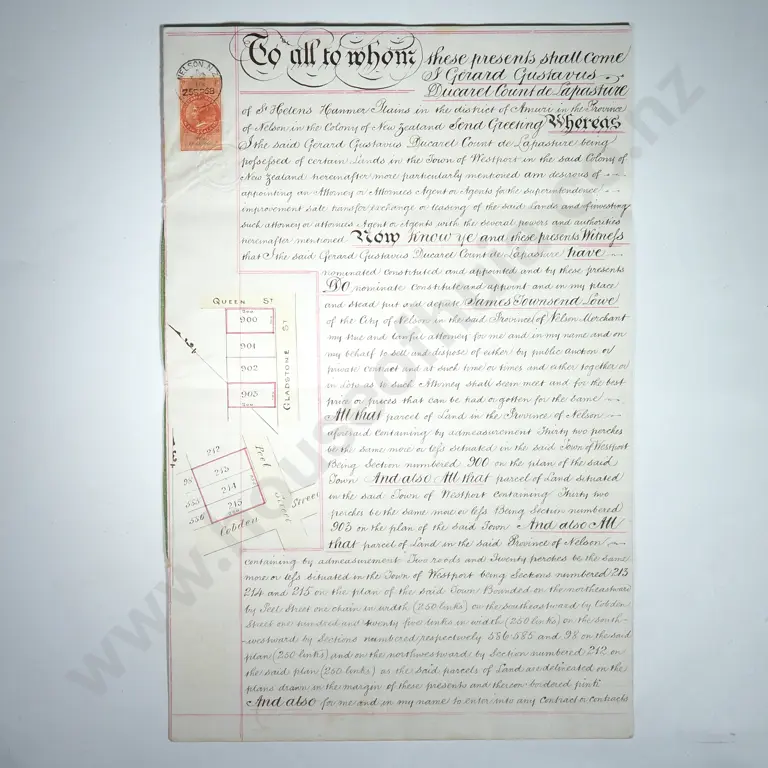 To all to whom these presents shall come
I Gerard Gustavus
Ducarel Count de Lapasture
of St Helens Hanmer Plains in the district of Amuri in the Province
of Nelson in the Colony of New Zealand Send Greeting Whereas
I the said Gerard Gustavus Ducarel Count de Lapasture being
possessed of certain Lands in the Town of Westport in the said Colony of
New Zealand hereinafter more particularly mentioned am desirous of
appointing an Attorney or Attornies Agent or Agents for the superintendence
improvement sale transfer exchange or leasing of the said Lands and of investing
such attorney or attornies Agent or Agents with the several powers and authorities
hereinafter mentioned Now Know ye and these presents Witness
that I the said Gerard Gustavus Ducarel Count de Lapasture have
nominated constituted and appointed and by these presents
Do nominate constitute and appoint and in my place
and stead put and depute James Townsend Lowe
of the City of Nelson in the said Province of Nelson Merchant
my true and lawful attorney for me and in my name and on
my behalf to sell and dispose of either by public auction or
private contract and at such time or times and either together or
in lots as to such Attorney shall seem meet and for the best
price or prices that can be had or gotten for the same
All that parcel of Land in the Province of Nelson
aforesaid containing by admeasurement Thirty two perches
be the same more or less situated in the said Town of Westport
Being Section numbered 900 on the plan of the said
Town And also All that parcel of Land situated
in the said Town of Westport containing Thirty two
perches be the same more or less Being Section numbered
903 on the plan of the said Town And also All
that parcel of Land in the said Province of Nelson
containing by admeasurement Two roods and Twenty perches be the same
more or less situated in the Town of Westport being Sections numbered 213
214 and 215 on the plan of the said Town Bounded on the northeastward
by Peel Street one chain in width (250 links) on the southeastward by Cobden
Street one hundred and twenty five links in width (250 links) on the south-
-westward by Sections numbered respectively 586 585 and 98 on the said
plan (250 links) and on the northwestward by Section numbered 212 on
the said plan (250 links) as the said parcels of Land are delineated on the
plans drawn in the margin of these presents and thereon bordered pink
And also for me and in my name to enter into any Contract or contracts
NELSON N.Z
QUEEN ST
900
901
902
903
GLADSTONE ST
212
213
214
215
98
Peel Street
Cobden Street